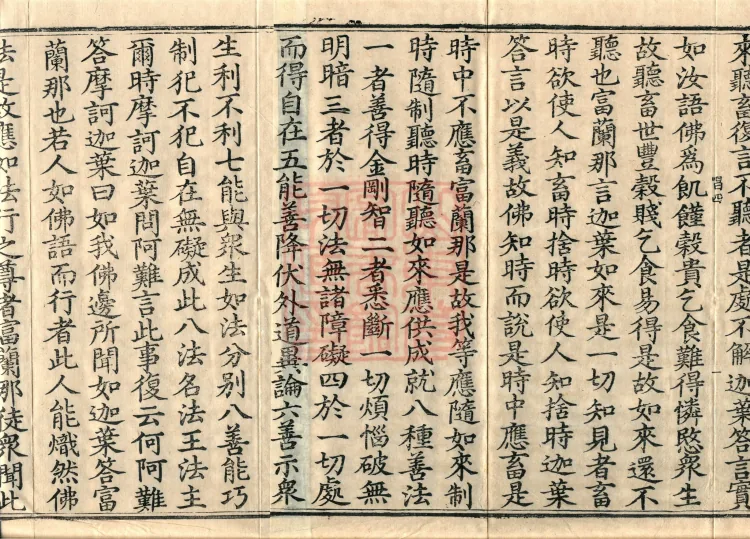 來聽畜復言不聽者是處不解迦葉答言實
如汝語佛爲飢饉穀貴乞食難得憐愍衆生
故聽畜世豐穀賤乞食易得是故如來還不
聽也富蘭那言迦葉如來是一切知見者畜
時欲使人知畜時捨時欲使人知捨時迦葉
答言以是義故佛知時而說是時中應畜是
時中不應畜富蘭那是故我等應隨如來制
時隨制聽時隨聽如來應供成就八種善法
一者善得金剛智二者悉斷一切煩惱破無
明暗三者於一切法無諸障礙四於一切處
而得自在五能善降伏外道異論六善示衆
生利不利七能與衆生如法分別八善能巧
制犯不犯自在無礙成此八法名法王法主
爾時摩訶迦葉問阿難言此事復云何阿難
答摩訶迦葉曰如我佛邊所聞如迦葉答富
蘭那也若人如佛語而行者此人能熾然佛
法是故應如法行之尊者富蘭那徒衆聞此